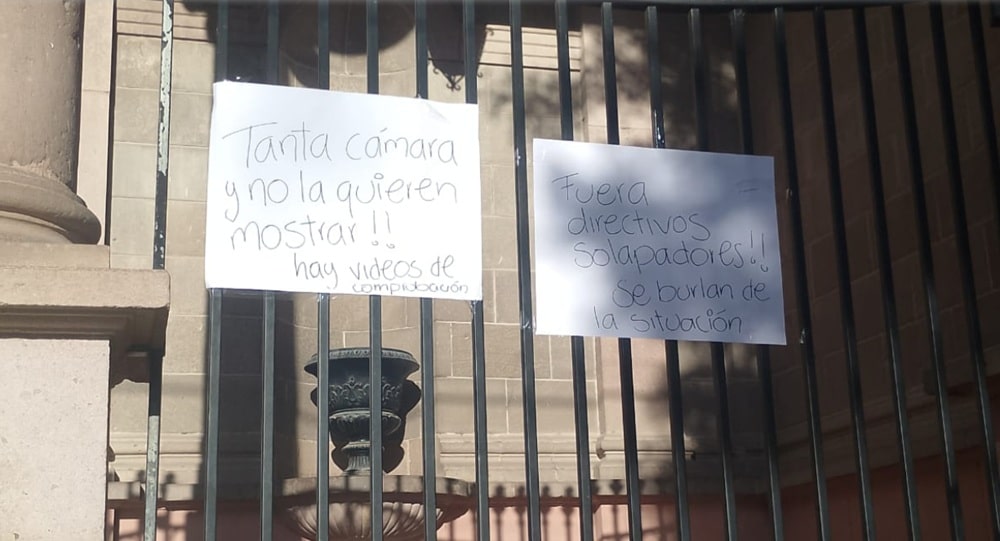 Tanta cámara
y no la quieren
mostrar!!
hay videos de
comprobación
Fuera
directivos
solapadores!!
Se burlan de
la situación